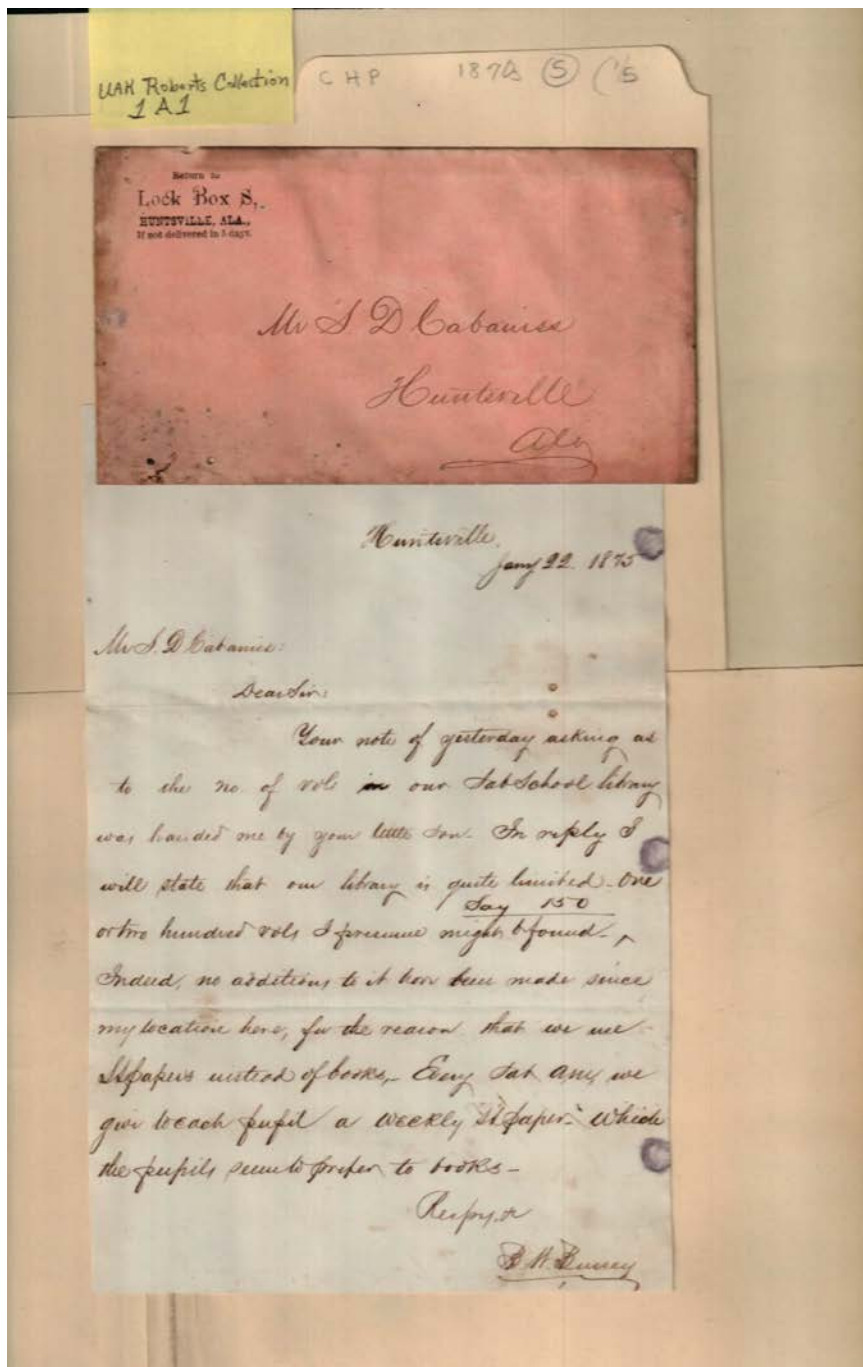 UAH Roberts Collection
1A1
CHP 1875 (5) (15
Return to
Lock Box S,
HUNTSVILLE, ALA.,
If not delivered in 5 days.
Mr S. D Cabaniss
Huntsville
Ala
Huntsville,
Jany 22. 1875
Mr S. D Cabaniss:
Dear Sir:
Your note of yesterday asking as
to the no. of vols in our Sab School library
was handed me by your little son. In reply I
will state that our library is quite limited - One
Say 150
or two hundred vols I presume might b found - ^
Indeed, no additions to it have been made since
my location here, for the reason that we use
SSpapers instead of books, - Every Sab we
give to each pupil a weekly "SSpaper" which
the pupils seem to prefer to books -
Respy
B. W. Bussey